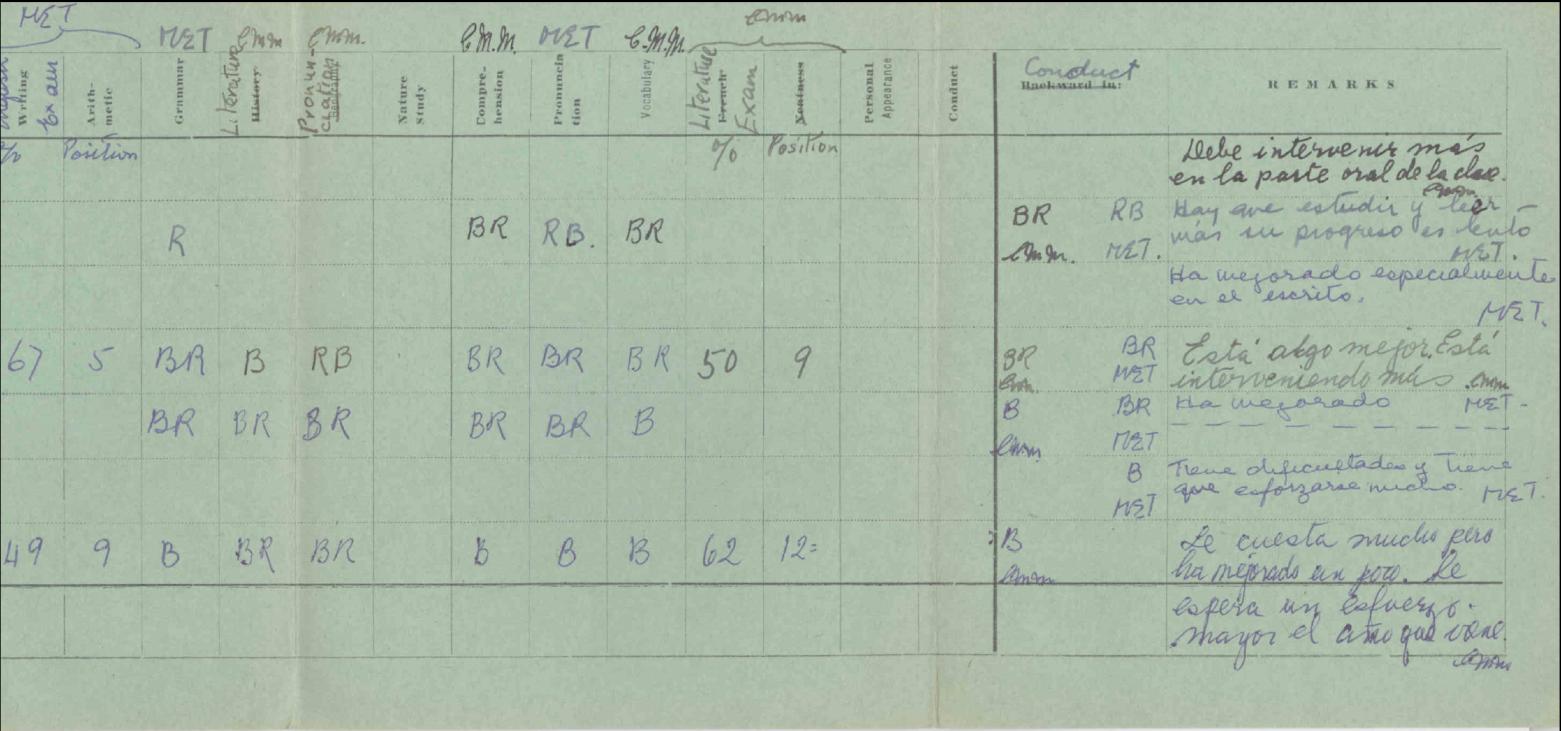 MET
MET Cmm Cmm. C.M.M. MET C.M.M. Cmm
Writing Exam
Arith-
metic
Grammar
Literature
History
Pronun-
ciation
Nature
Study
Compre-
hension
Pronuncia
tion
Vocabulary
Literature
French
Exam
Neatness
Personal
Appearance
Conduct
Conduct
Backward in:
REMARKS
% Position % Position
Debe intervenir más
en la parte oral de la clase.
Cmm
R BR RB. BR BR RB Hay que estudir y leer –
más su progreso es lento
Cmm. MET. MET.
Ha mejorado especialmente
en el escrito.
MET.
67 5 BR B RB BR BR BR 50 9 BR BR Está algo mejor. Está
Cmm. MET interveniendo más. Cmm
BR BR BR BR BR B B BR Ha mejorado MET-
Cmm MET
B Tiene dificultades y tiene
que esforzarse mucho. MET.
MET
49 9 B BR BR B B B 62 12= B Le cuesta mucho pero
Cmm ha mejorado un poco. Se
espera un esfuerzo
mayor el año que viene.
Cmm